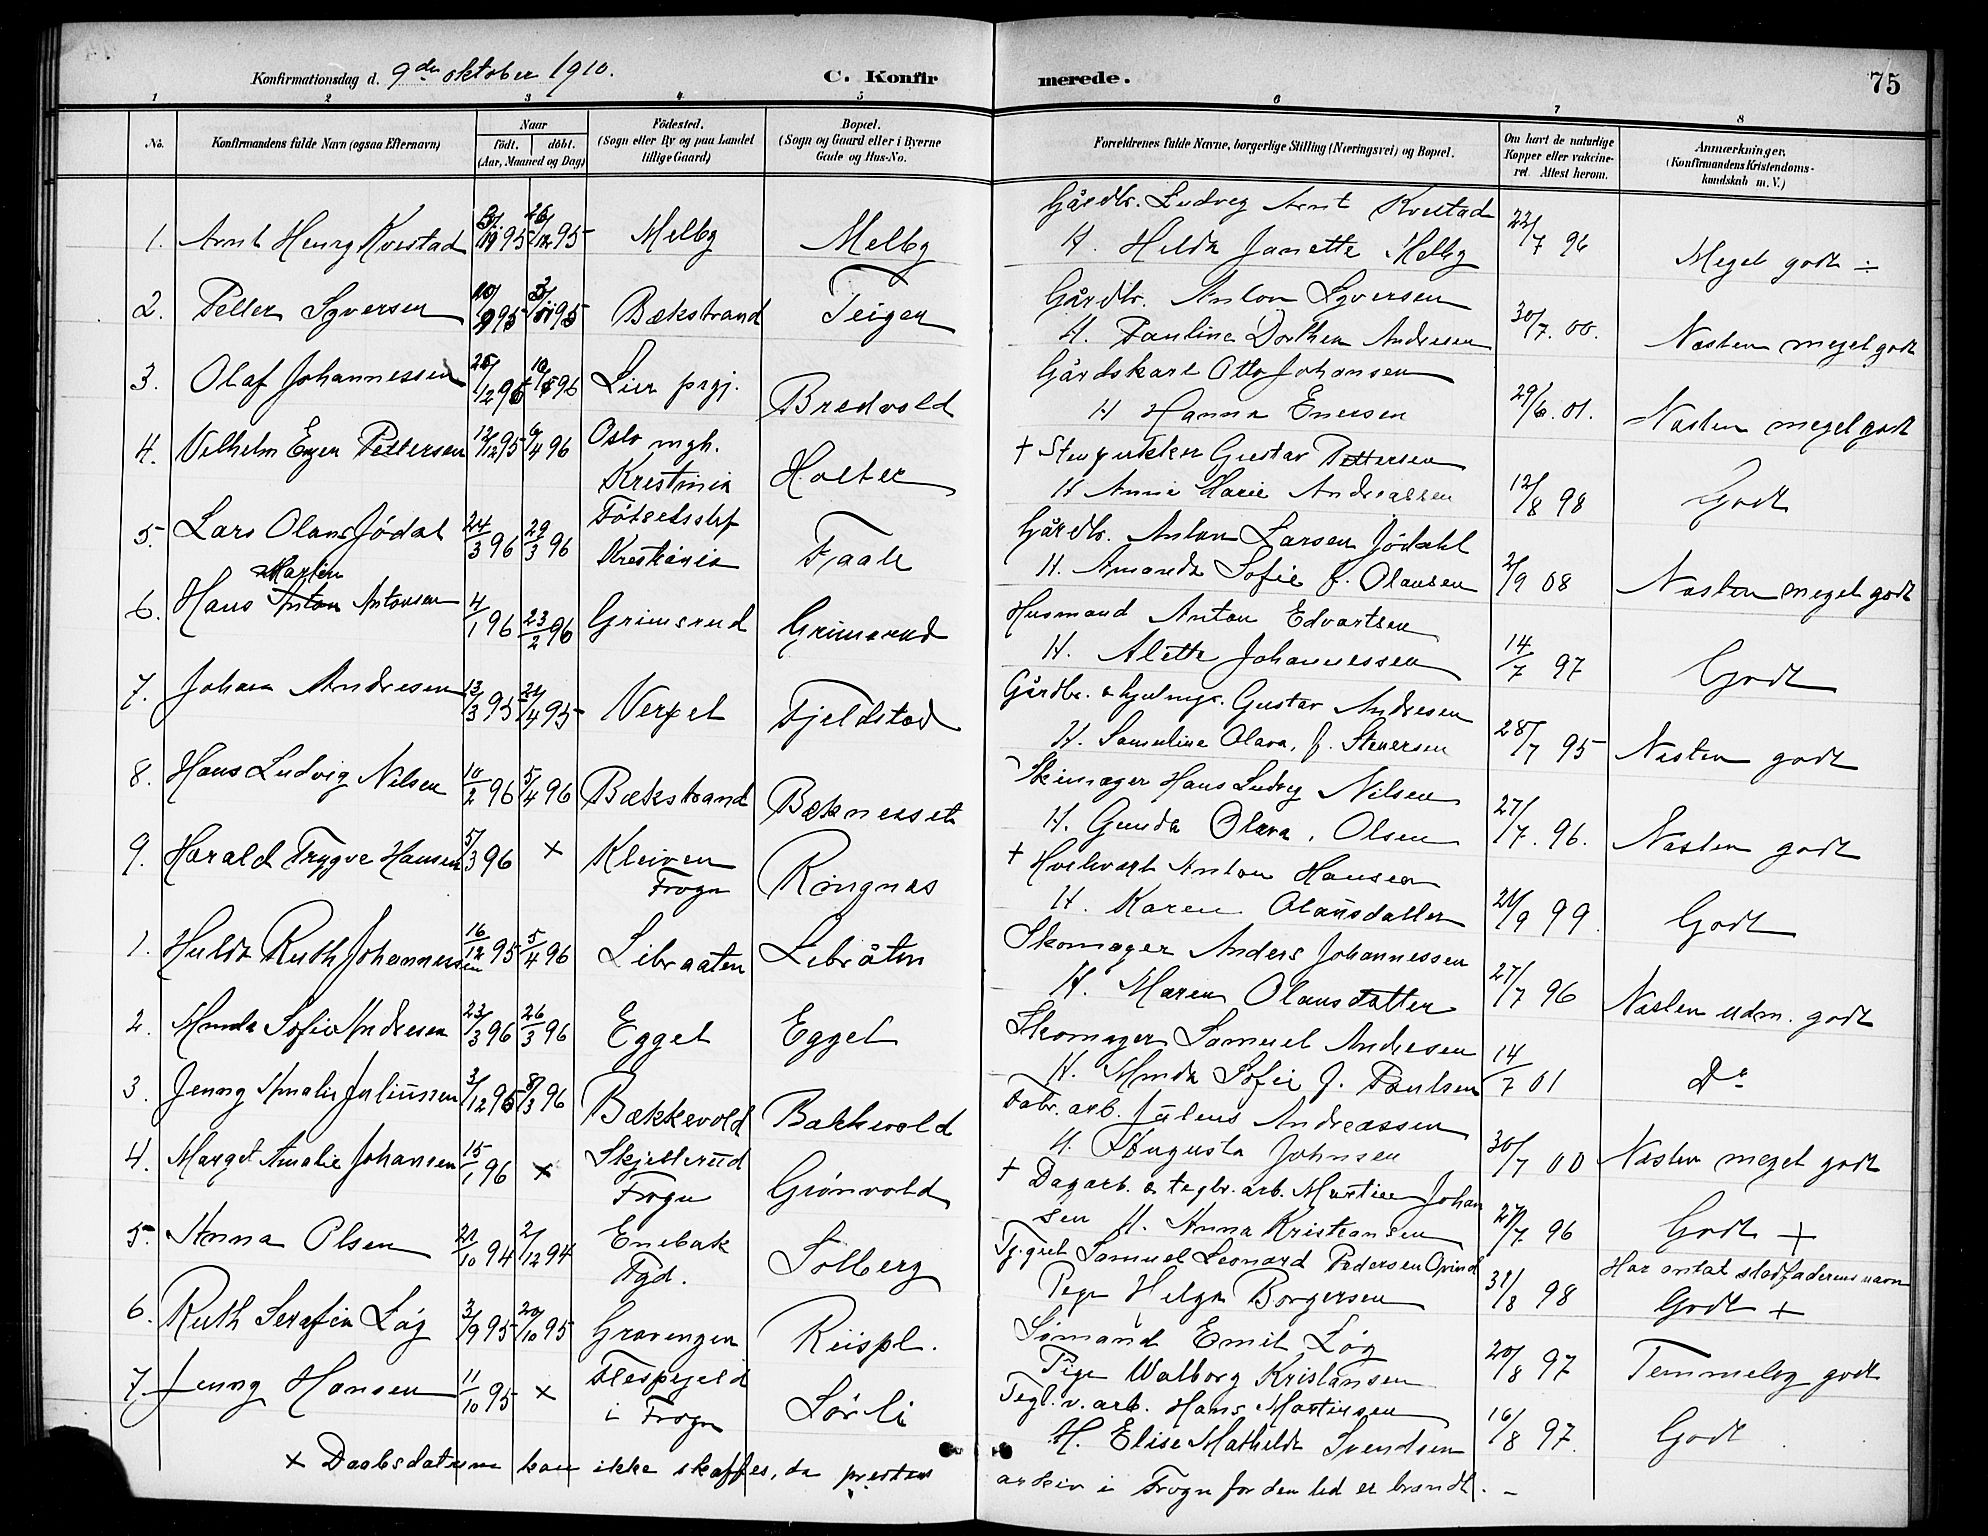 Konfirmationsdag d. 9de oktober 1910. C. Konfir merede. 75
1 2 3 4 5 6 7 8
No. Konfirmandens fulde Navn (ogsaa Efternavn) Naar født. døbt. (Aar, Maaned og Dag) Fødested. (Sogn eller By og paa Landet tillige Gaard) Bopæl. (Sogn og Gaard eller i Byerne Gade og Hus-No. Forældrenes fulde Navne, borgerlige Stilling (Næringsvei) og Bopæl. Om havt de naturlige Kopper eller vakcineret Attest herom. Anmærkninger, (Konfirmandens Kristendomskundskab m. V.)
Gårdbr. Ludvig Arnt Kvestad
1. Arnt Henry Kvestad 95 26/12 95 Melby Melby H. Hilda Janette Melby 22/7 96 Meget godt ÷
Gårdbr. Anton Syversen
2. Petter Syversen 10/9 95 3/11 95 Bækstrand Teigen H. Pauline Dorthea Andresen 30/7. 00. Næsten meget godt
Gårdskarl Otto Johansen
3. Olaf Johannessen 26/12 95 10/5 96 Lier prgj. Bredvold H Hanna Enersen 29/6. 01. Næsten meget godt
† Stenpukker Gustav Pettersen
4. Vilhelm Pettersen 12/12 95 6/4 96 Oslo mgh. Kristinia Holter H Anne Marie Andreassen 12/8 98 Godt
Gårdbr. Anton Larsen Jödahl
5. Lars Olaus Jödal 24/3 96 29/3 96 Fötselsstif Kristiania Faale H. Amanda Sofie f. Olausen 2/9 08 Næsten meget godt
Martin
Husmand Anton Edvartsen
6. Hans Anton Antonsen 4/1 96 23/2 96 Grimsrud Grimsrud H. Alette Johannessen 14/7 97 Godt
Gårdbr. & Gustav Andresen
7. Johan Andresen 13/3 95 21/4 95 Verpet Fjeldstad H. Samuline Olava, f. Stenersen 28/7 95 Næsten godt
Skinnager Hans Ludvig Nilsen
8. Hans Ludvig Nilsen 10/2 96 5/4 96 Bækstrand Bæknesset H. Gunda Olava, Olsen 27/7. 96. Næsten godt
† Anton Hansen
9. Harald Trygve Hansen 5/3 96 × Kleiven Frogn Ringnes H. Karen Olausdatter 21/9 99 Godt
Skomager Anders Johannessen
1. Hulda Ruth Johannessen 16/12 95 5/4 96 Libraaten Libråten H. Maren Olausdatter 27/7 96 Næsten udm. godt
Skomager Samuel Andresen
2. Minda Sofie Andresen 23/3 96 26/3 96 Egget Egget H. Minda Sofie f. Paulsen 14/7 01 Do
Fabr. arb. Julius Andreassen
3. Jenny Amalie Juliussen 3/12 95 8/3 96 Bækkevold Bækkevold H. Augusta Johnsen 30/7 00 Næsten meget godt
† Dagarb. & teglv. arb. Martin Johan
4. Marget Amalie Johansen 15/1 96 × Skjellerud Frogn Grönvold sen H. Anna Kristiansen 27/7 96 Godt +
Samuel Leonard Pedersen Opind Har antat stedfaderens navn
5. Anna Olsen 21/10 94 2/12 94 Enebak Fgd. Solberg Pige Helga Borgersen 31/8 98 Godt +
Sömand Emil Løg
6. Ruth Serafia Løg 3/9 95 20/10 95 Gravengen Riispl. Pige Walborg Kristansen 20/8 97 Temmelig godt
Tegl. v. arb. Hans Martinsen
7. Jenny Hansen 11/10 95 × Flespjeld i Frogn Sörli H. Elise Mathilde Svendsen 16/8 97. Godt
× Daabsdatum kan ikke skaffes, da prestens arkiv i Frogn for den tid er brandt. –